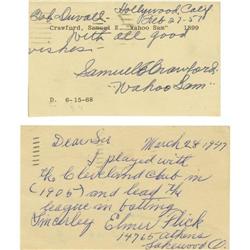 Bob Duvall - Hollywood, Calif
Feb 27-57
Crawford, Samuel E. "Wahoo Sam" 1899
With all good
wishes -
Samuel E Crawford.
"Wahoo Sam"
D. 6-15-68
Dear Sir March 28 1947
I played with
the Cleveland club in
(1905) and lead the
league in batting
Sincerley Elmer Flick
14765 Athens
Lakewood O